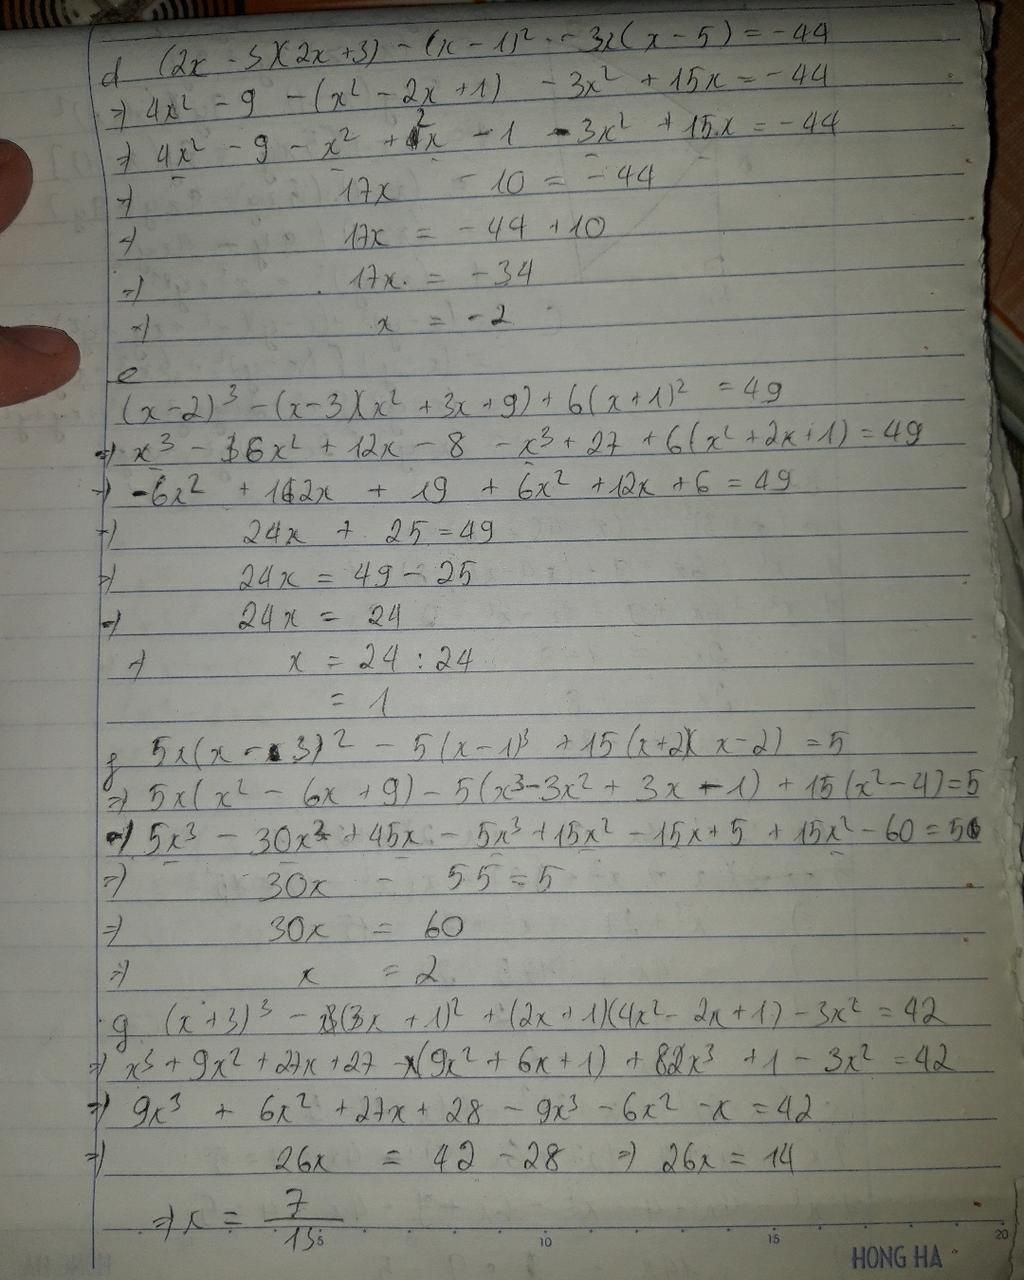 d (2x - 3)(2x + 3) - (x - 1)² - 3x(x - 5) = -44
=> 4x² - 9 - (x² - 2x + 1) - 3x² + 15x = -44
=> 4x² - 9 - x² + 2x - 1 - 3x² + 15x = -44
=> 17x - 10 = -44
=> 17x = -44 + 10
=> 17x = -34
=> x = -2
e
(x - 2)³ - (x - 3)(x² + 3x + 9) + 6(x + 1)² = 49
=> x³ - 6x² + 12x - 8 - x³ + 27 + 6(x² + 2x + 1) = 49
=> -6x² + 12x + 19 + 6x² + 12x + 6 = 49
=> 24x + 25 = 49
=> 24x = 49 - 25
=> 24x = 24
=> x = 24 : 24
= 1
f 5x(x - 3)² - 5(x - 1)³ + 15(x + 2)(x - 2) = 5
=> 5x(x² - 6x + 9) - 5(x³ - 3x² + 3x - 1) + 15(x² - 4) = 5
=> 5x³ - 30x² + 45x - 5x³ + 15x² - 15x + 5 + 15x² - 60 = 5
=> 30x - 55 = 5
=> 30x = 60
=> x = 2
g (x + 3)³ - x(3x + 1)² + (2x + 1)(4x² - 2x + 1) - 3x² = 42
=> x³ + 9x² + 27x + 27 - x(9x² + 6x + 1) + 8x³ + 1 - 3x² = 42
=> 9x³ + 6x² + 27x + 28 - 9x³ - 6x² - x = 42
=> 26x = 42 - 28 => 26x = 14
=> x = 7/13
5 10 15 20
HONG HA